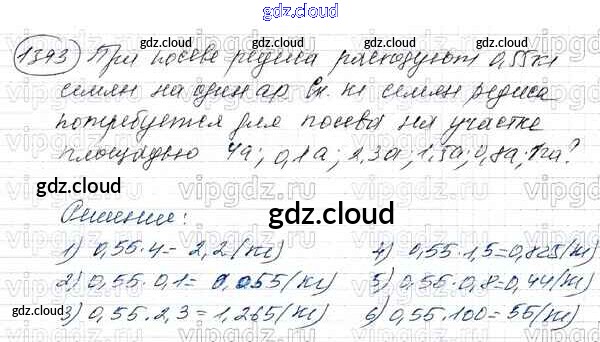 gdz.cloud
1393 При посеве редиса расходуют 0,55 кг
семян на один ар. Ск. кг семян редиса
потребуется для посева на участке
площадью 4а; 0,1а; 2,3а; 1,5а; 0,8а; 1га?
Решение:
1) 0,55·4= 2,2 (кг)
2) 0,55·0,1= 0,055 (кг)
3) 0,55·2,3= 1,265 (кг)
4) 0,55·1,5=0,825 (кг)
5) 0,55·0,8=0,44 (кг)
6) 0,55·100=55 (кг)
gdz.cloud
vipgdz.ru